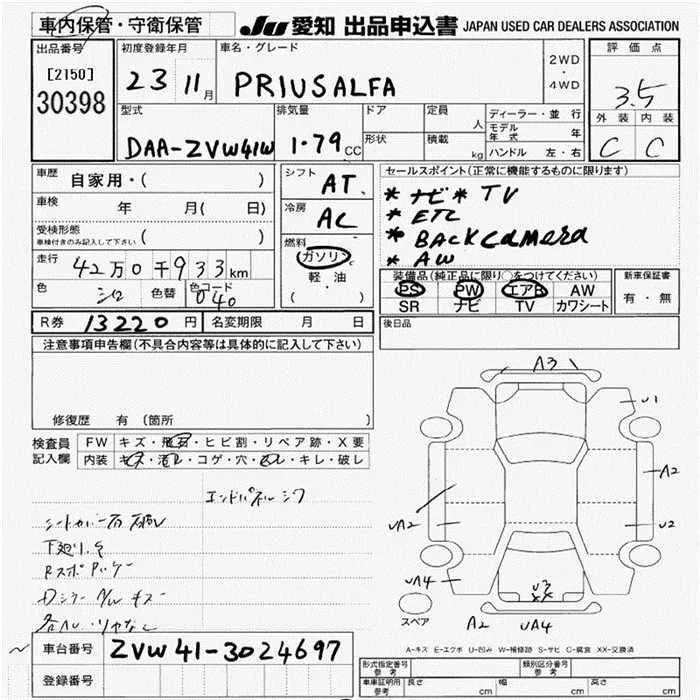 車内保管・守衛保管
JU 愛知 出品申込書 JAPAN USED CAR DEALERS ASSOCIATION
出品番号
[2150]
30398
初度登録年月
23 11月
車名・グレード
PRIUSALFA
2WD
・
4WD
評価点
3.5
外装 内装
C C
型式
DAA-ZVW41W
排気量
1.79 CC
ドア
形状
定員 人
積載 kg
ディーラー・並行
モデル年式 年
ハンドル 左・右
車歴 自家用・( )
車検 年 月( 日)
受検形態
車検付きのみ記入して下さい ( )
走行 42万0千933km
色 シロ 色替 色コード 040
シフト AT
冷房 AC
燃料
ガソリン
軽・油
( ・ )
セールスポイント(正常に機能するものに限ります)
* ナビ * TV
* ETC
* BACKCAMERA
* AW
装備品(純正品に限り○をつけてください)
PS PW エアB AW
SR ナビ TV カワシート
新車保証書
有・無
R券 13220円 名変期限 月 日
後日品
注意事項申告欄(不具合内容等は具体的に記入して下さい)
修復歴 有 (箇所 )
検査員記入欄
FW キズ・飛石・ヒビ割・リペア跡・X要
内装 キズ・汚レ・コゲ・穴・ヨレ・キレ・破レ
エンドパネルシワ
下廻り
A3
U1
A2
UA2
U2
UA4
U3
XX
A2
UA4
スペア
A-キズ E-エクボ U-凹み W-補修跡 S-サビ C-腐食 XX-交換済
車台番号 ZVW41-3024697
登録番号
形式指定番号 参考
類別区分番号 参考
車庫証明用 参考 長さ cm 幅 cm 高さ cm